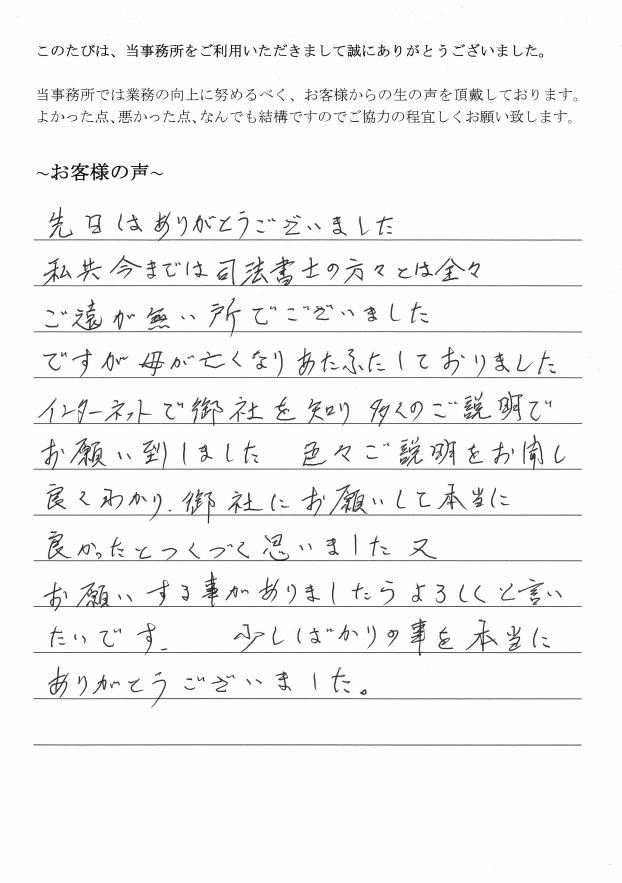 このたびは、当事務所をご利用いただきまして誠にありがとうございました。
当事務所では業務の向上に努めるべく、お客様からの生の声を頂戴しております。
よかった点、悪かった点、なんでも結構ですのでご協力の程宜しくお願い致します。
~お客様の声~
先日はありがとうございました
私共今までは司法書士の方々とは全々
ご遠が無い所でございました
ですが母が亡くなりあたふたしておりました
インターネットで御社を知り多くのご説明で
お願い到しました 色々ご説明をお聞し
良くわかり.御社にお願いして本当に
良かったとつくづく思いました又
お願いする事がありましたらよろしくと言い
たいです. 少しばかりの事を本当に
ありがとうございました。